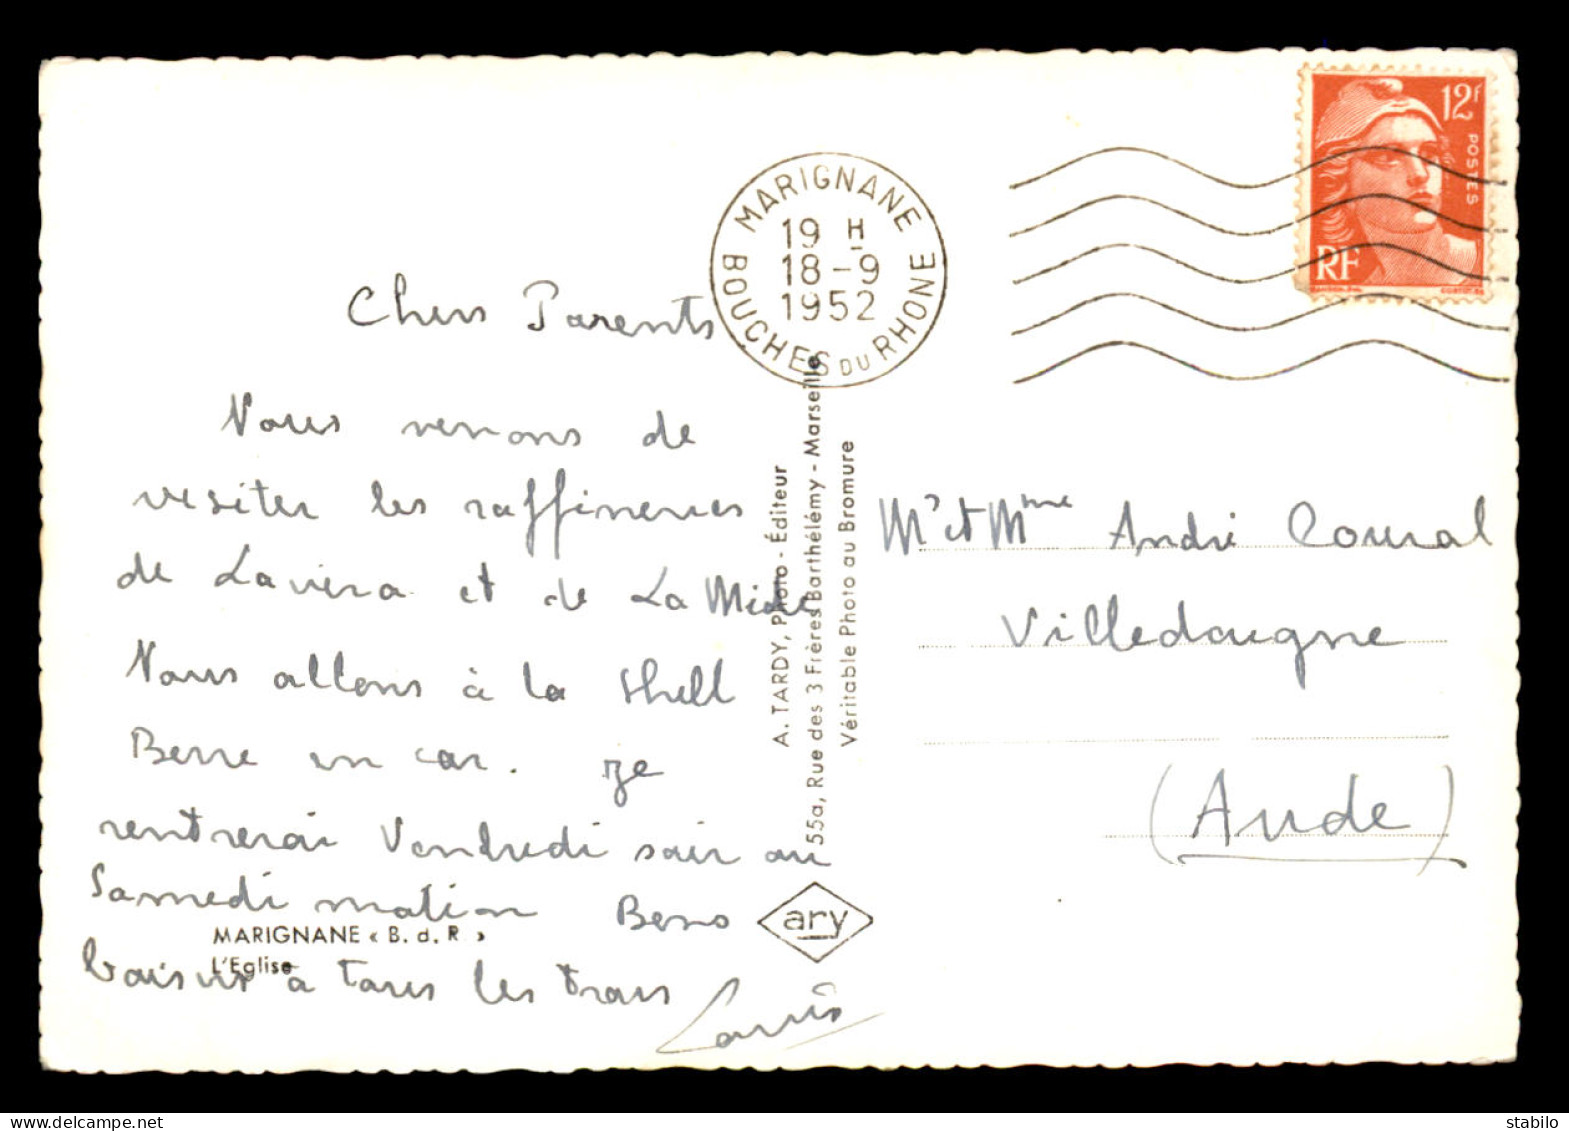 Chers Parents
Nous venons de
visiter les raffineries
de Lavera et de La Mède
Nous allons à la Shell
Berre en car. Je
rentrerai Vendredi soir ou
Samedi matin Bons
baisers à tous les trois
Louis
MARIGNANE « B. d. R. »
L'Eglise
MARIGNANE
19 H
18-9
1952
BOUCHES DU RHONE
A. TARDY, Photo - Éditeur
55a, Rue des 3 Frères Barthélémy - Marseille
Véritable Photo au Bromure
ary
12f
POSTES
RF
Mr et Mme André Coural
Villedaigne
(Aude)
stabilo